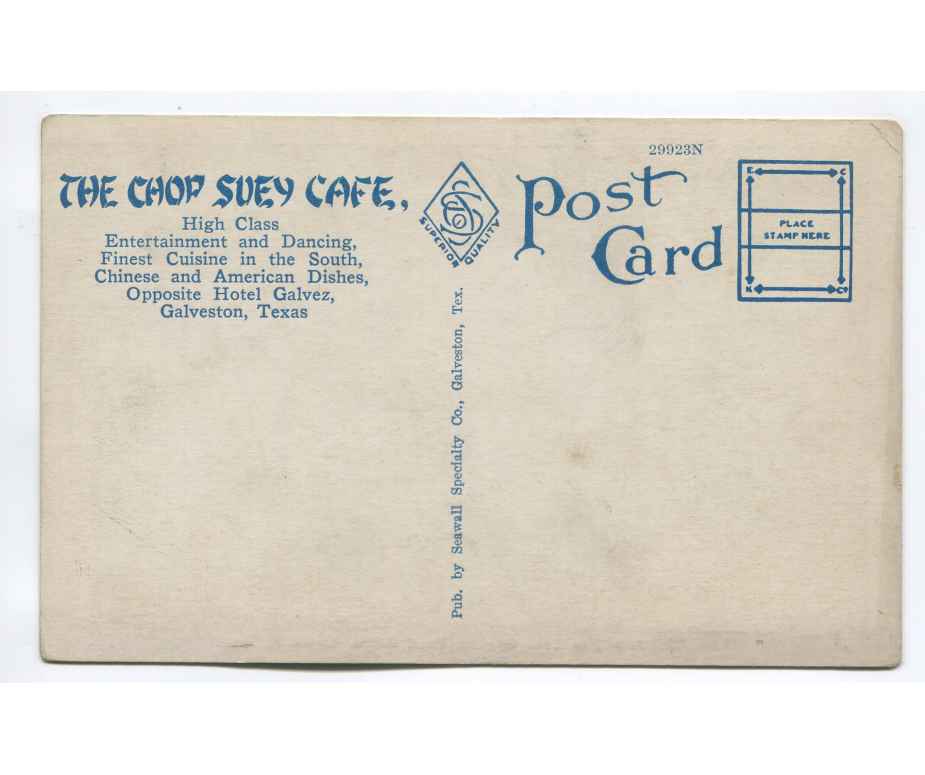 THE CHOP SUEY CAFE,
High Class
Entertainment and Dancing,
Finest Cuisine in the South,
Chinese and American Dishes,
Opposite Hotel Galvez,
Galveston, Texas
SUPERIOR QUALITY
Pub. by Seawall Specialty Co., Galveston, Tex.
29923N
Post
Card
E C
PLACE
STAMP HERE
K Co